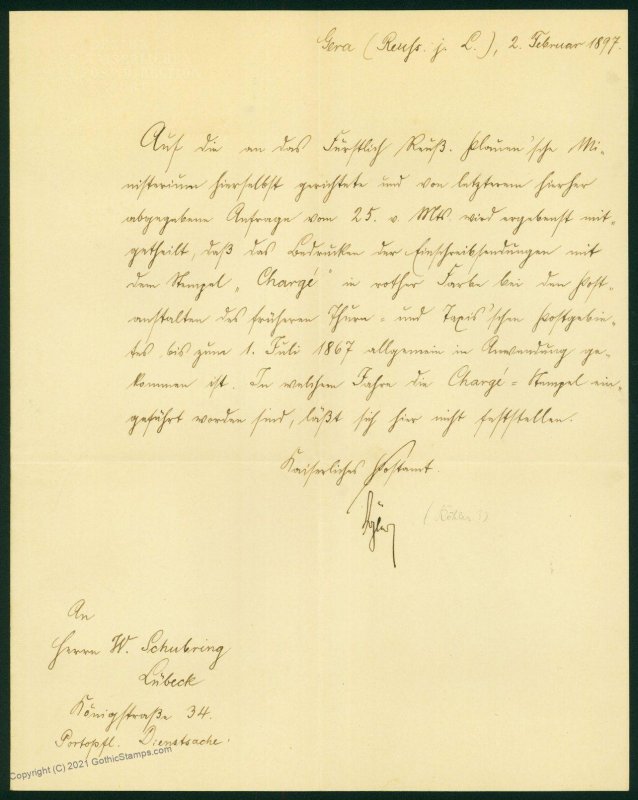 Gera (Reuß. j. L.), 2. Februar 1897.
Auf die an das Fürstlich Reuß. Plauen'sche Mi-
nisterium hierselbst gerichtete und von letzterem hierher
abgegebene Anfrage vom 25. v. Mts. wird ergebenst mit-
getheilt, daß das Bedrucken der Einschreibsendungen mit
dem Stempel „Chargé" in rother Farbe bei den Post-
anstalten des früheren Thurn- und Taxis'schen Postgebie-
tes bis zum 1. Juli 1867 allgemein in Anwendung ge-
kommen ist. In welchem Jahre die Chargé-Stempel ein-
geführt worden sind, läßt sich hier nicht feststellen.
Kaiserliches Postamt.
(Köhler?)
An
Herrn W. Schubring
Lübeck
Königstraße 34.
Portopfl. Dienstsache.
Copyright (C) 2021 GothicStamps.com